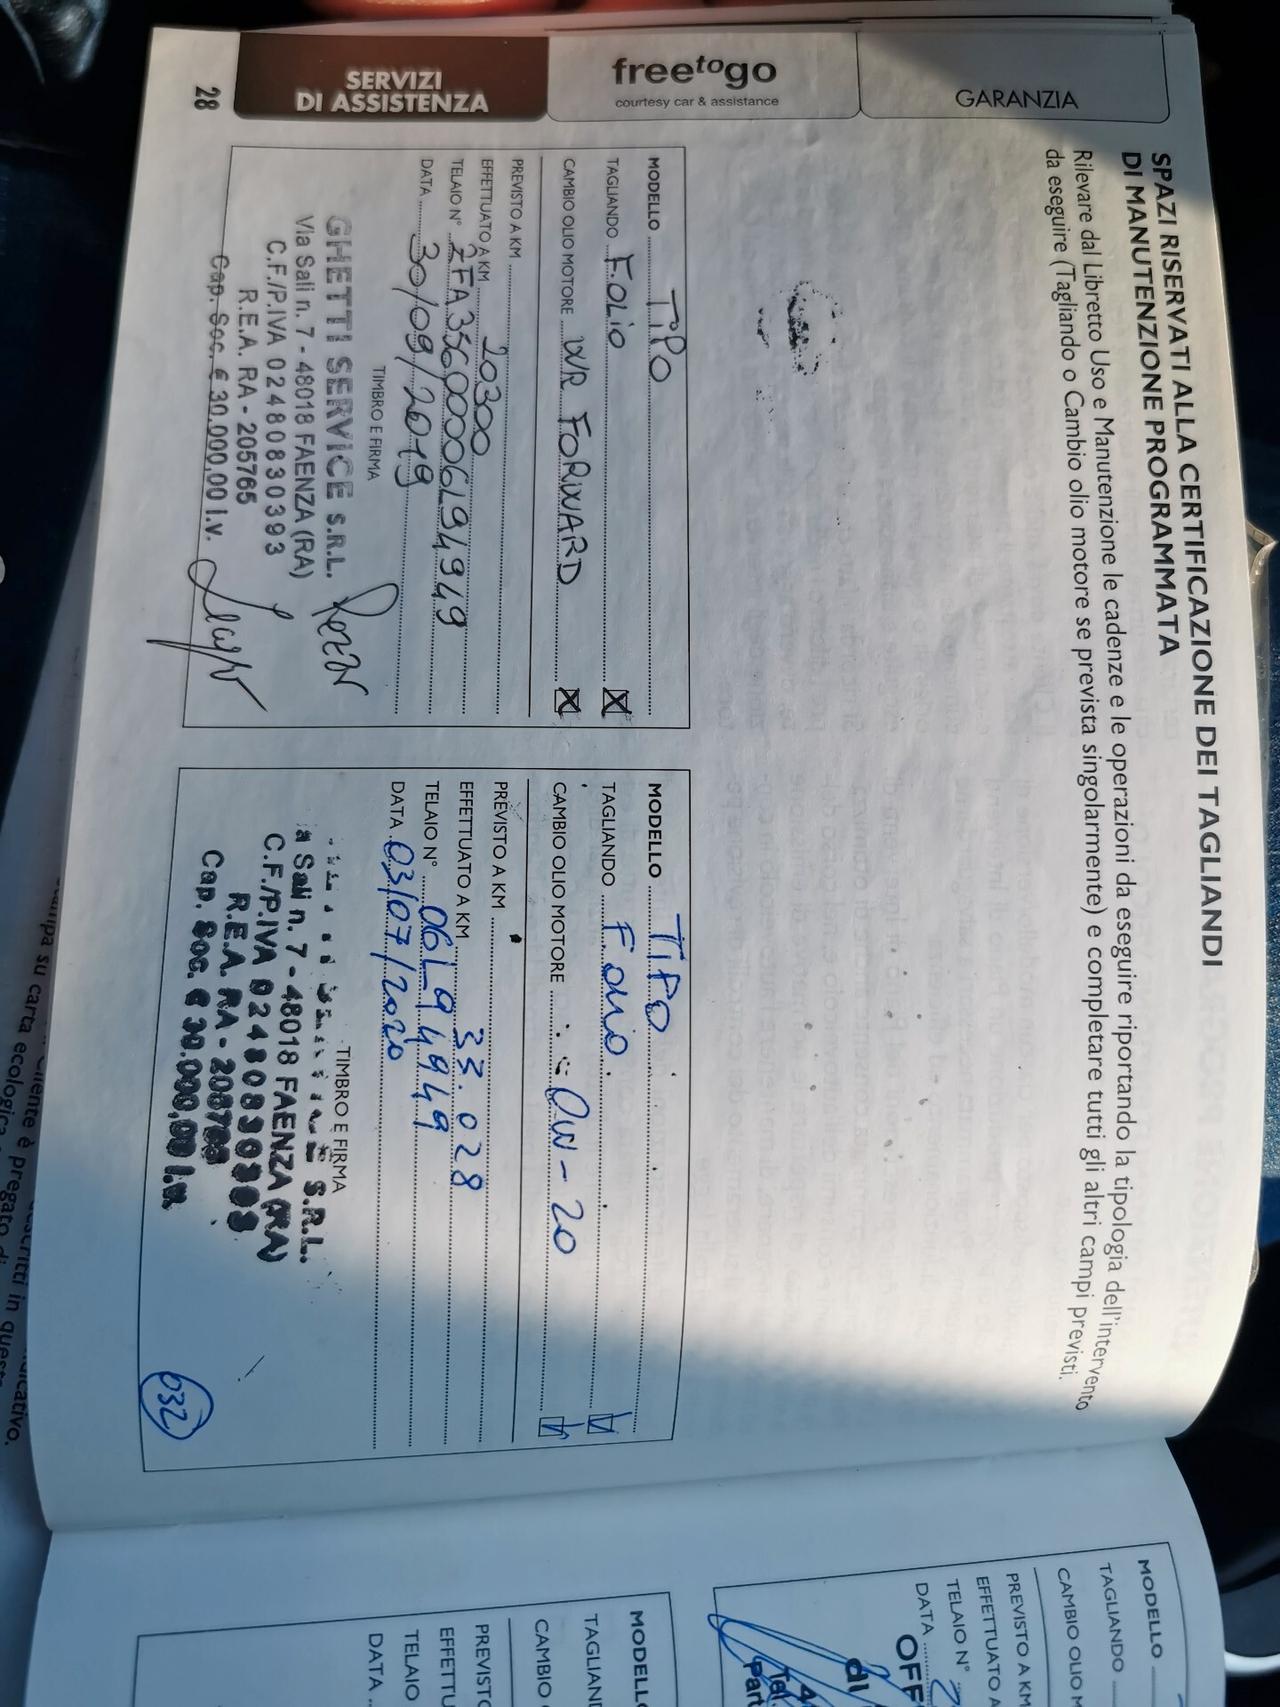 GARANZIA
freetogo
courtesy car & assistance
SERVIZI
DI ASSISTENZA
28
SPAZI RISERVATI ALLA CERTIFICAZIONE DEI TAGLIANDI
DI MANUTENZIONE PROGRAMMATA
Rilevare dal Libretto Uso e Manutenzione le cadenze e le operazioni da eseguire riportando la tipologia dell'intervento
da eseguire (Tagliando o Cambio olio motore se prevista singolarmente) e completare tutti gli altri campi previsti.
MODELLO TIPO
TAGLIANDO F.OLIO
CAMBIO OLIO MOTORE WR FORWARD
PREVISTO A KM
EFFETTUATO A KM 20300
TELAIO N° ZFA35600006L94949
DATA 30/09/2019
TIMBRO E FIRMA
GHETTI SERVICE S.R.L.
Via Sali n. 7 - 48018 FAENZA (RA)
C.F./P.IVA 02480830393
R.E.A. RA - 205765
Cap. Soc. € 30.000,00 I.v.
MODELLO TIPO
TAGLIANDO
CAMBIO OLIO MOTORE 0W-20
PREVISTO A KM
EFFETTUATO A KM 33.028
TELAIO N° 06L94949
DATA 03/07/2020
TIMBRO E FIRMA
S.R.L.
a Sali n. 7 - 48018 FAENZA (RA)
C.F./P.IVA
R.E.A. RA -
Cap. Soc. € 30.000,00 I.v.
032
MODELLO
TAGLIANDO
CAMBIO OLIO
PREVISTO A KM
EFFETTUATO A
TELAIO N°
DATA
OFF
di
Tel
Part
MODELLO
TAGLIAN
CAMBIO
PREVISTO
EFFETTU
TELAIO
DATA